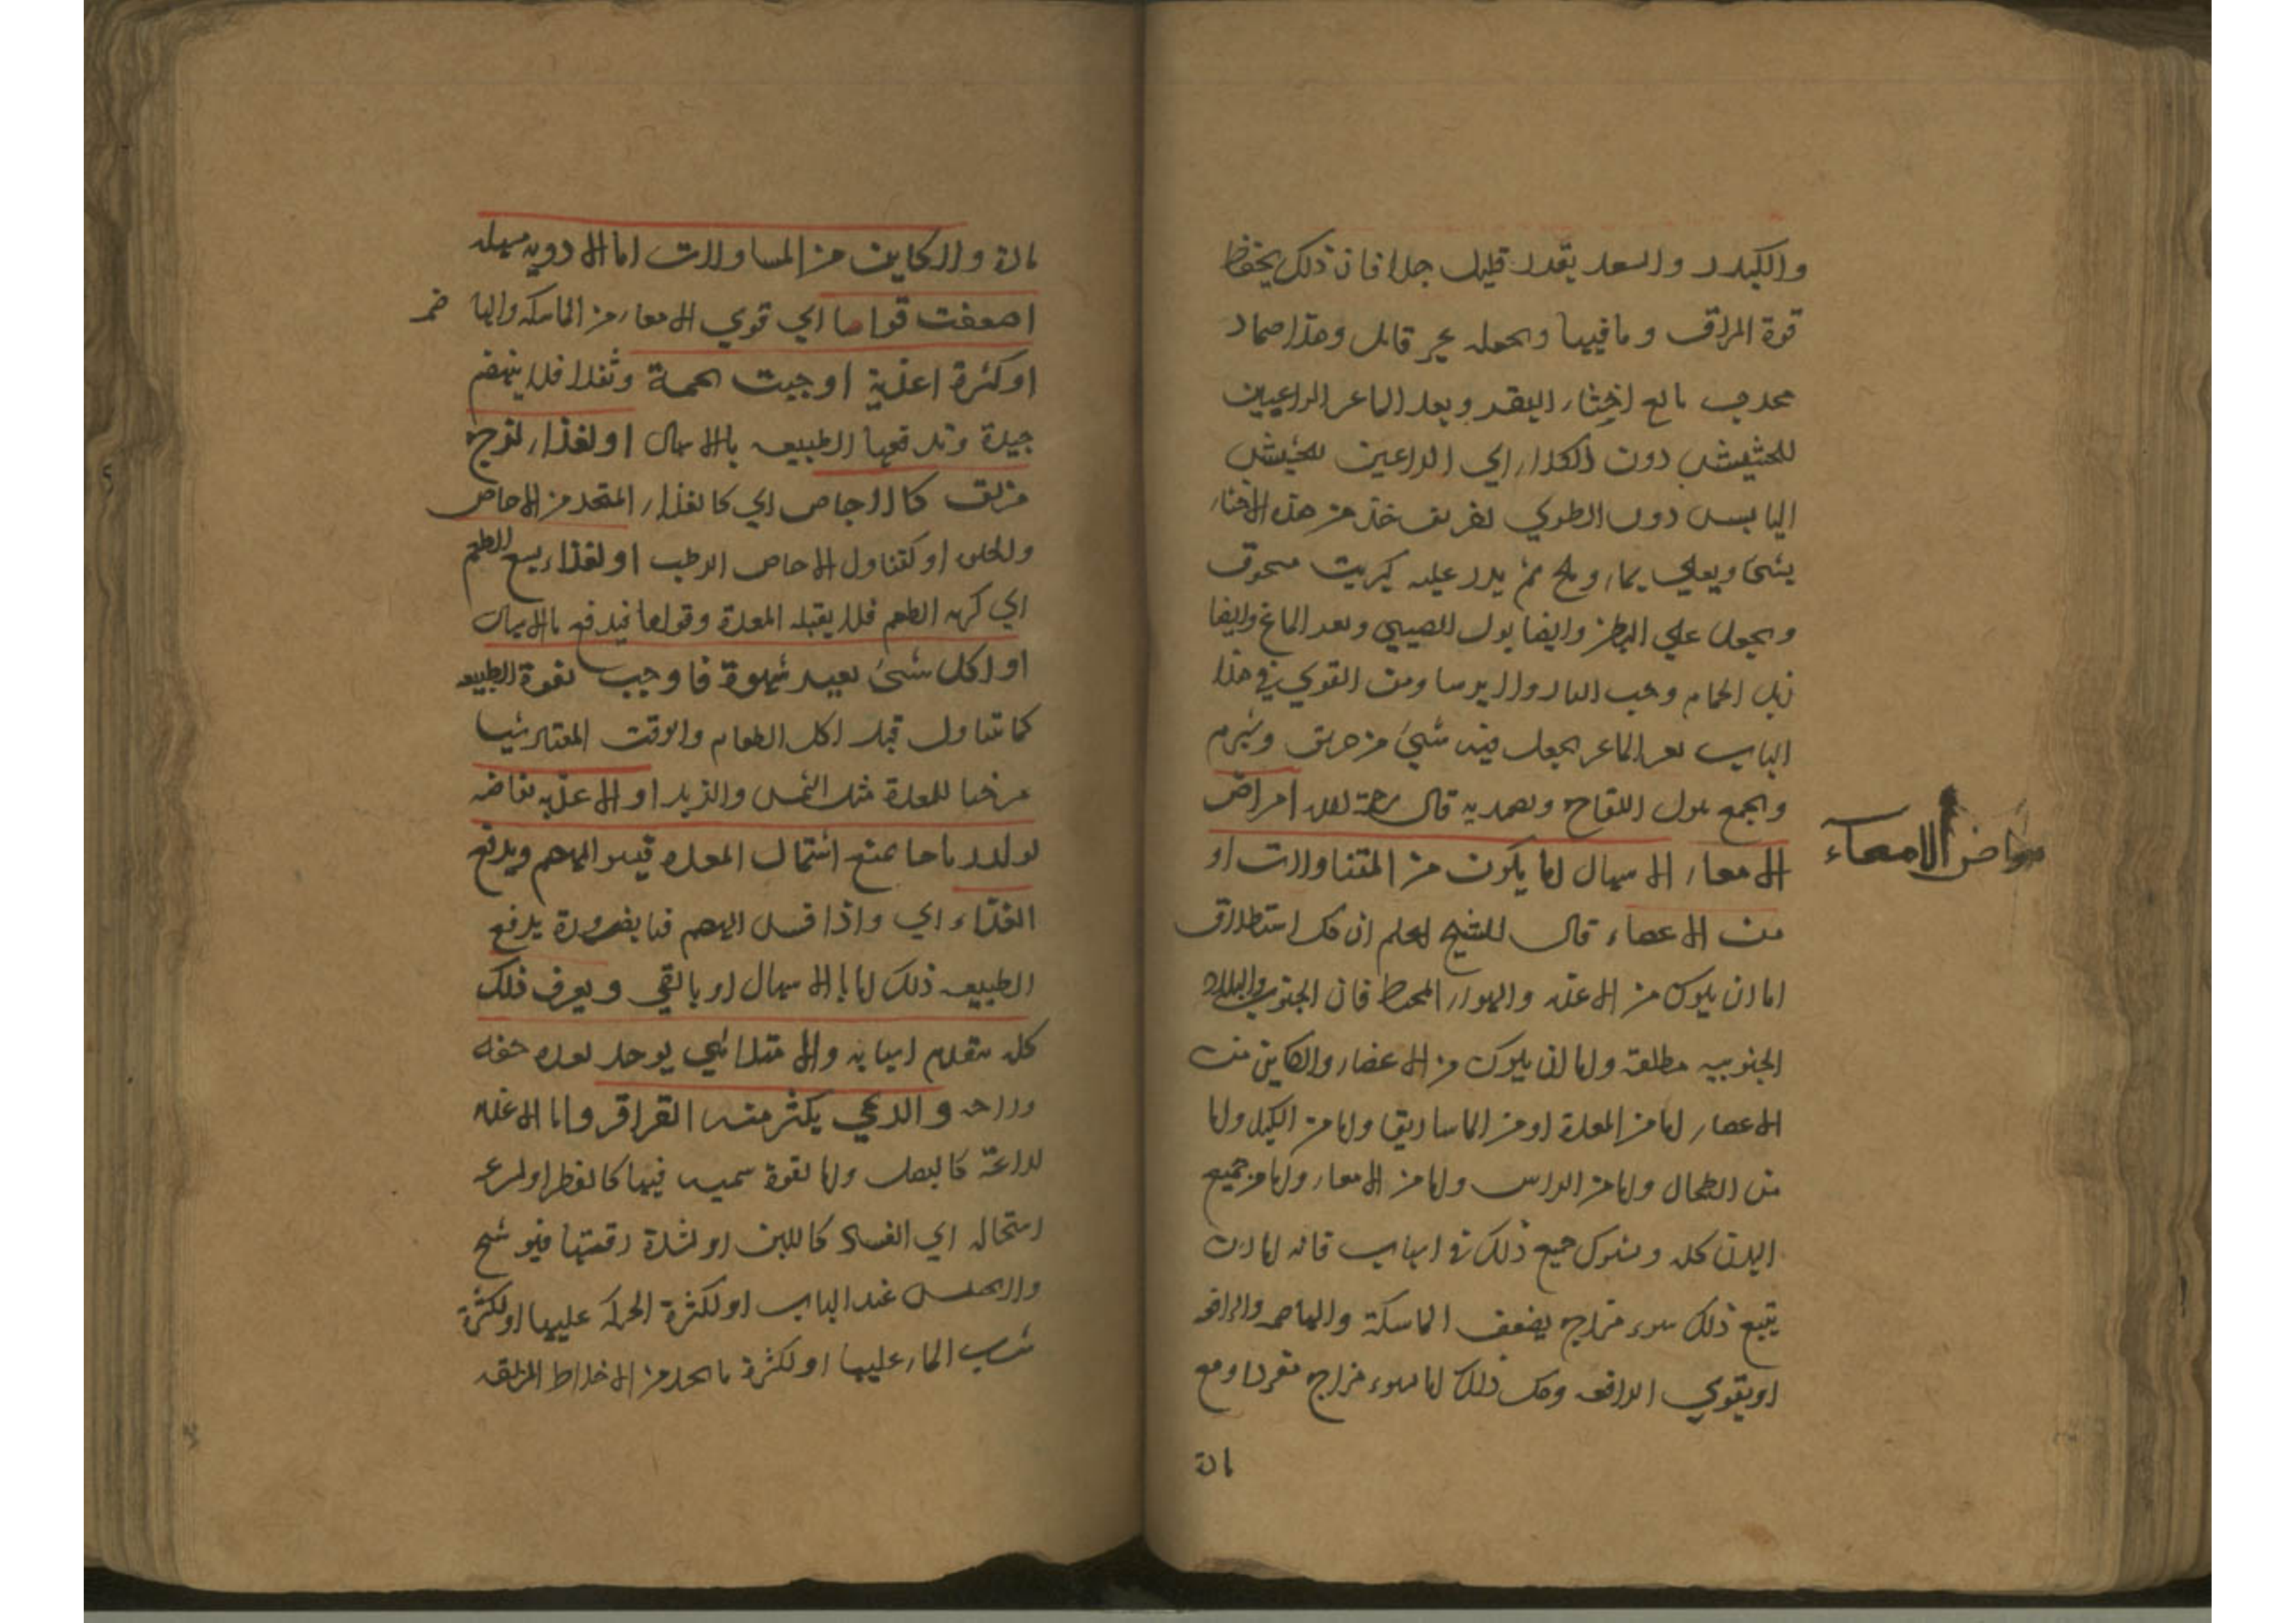 والكندر والسعد بقدر قليل جدا فان ذلك يحفظ
قوة المراق وما فيها وبحوله غير قابل وهذا ضماد
مجرب نافع اخثاء البقر وبعر الماعز الراعيين
للحشيش دون الكلاء اي الراعين للحشيش
اليابس دون الطري تفريق خذ من هذه الاخثاء
شيئا ويغلي بماء وملح ثم يذر عليه كبريت مسحوق
ويجعل علي البطن وايضا بول الصبيي وبعر الماعز وايضا
زبل الحمام وحب الغار والايرسا ومن القوي في هذا
الباب بعر الماعز يجعل فيه شيئ من خربق وشبرم
ويجمع ببول اللقاح ويضمد به قال رحمة الله امراض
الامعاء الاسهال اما يكون من المتناولات او
امراض الامعاء
من الاعضاء قال الشيخ اعلم ان كل استطلاق
اما ان يكون من الاغذيه والهواء المحيط فان الجنوب والبلاد
الجنوبيه مطلقة واما ان يكون من الاعضاء والكاين من
الاعضاء اما من المعدة او من الماساريقا واما من الكبد واما
من الطحال واما من الراس واما من الامعاء واما من جميع
البدن كله ويشترك جميع ذلك في اسباب فانه اما ان
يتبع ذلك سوء مزاج يضعف الماسكة والهاضمه والدافعه
او يقوي الدافعه وكل ذلك اما سوء مزاج مفردا ومع
مادة
مادة والكاين من المتناولات اما الادويه مسهله
اضعفت قواها اي قوي الامعاء من الماسكه والها
ضمه
او كثرة اغذية اوجبت تخمة وثقلا فلا ينهضم
جيدة وتدفعها الطبيعه بالاسهال او لغذاء لزج
مزلق كالاجاص اي كالغذاء المتخذ من الاجاص
والخل او كتناول الاجاص الرطب او لغذاء بشع الطعم
اي كريه الطعم فلا يقبله المعدة وقواها فيدفع بالاسهال
او اكل شئ بعيد شهوة فاوجب لقوة الطبيعه
كما تناول قبل اكل الطعام والوقت المعتاد شيا
مرخيا للمعدة مثل السمن والزبد او الاغذيه نفاخه
تولد رياحا يمنع اشتمال المعده فيفسد الهضم ويدفع
الغذاء اي واذا فسد الهضم فبالضرورة يدفع
الطبيعه ذلك اما بالاسهال او بالقي ويعرف ذلك
كله بتقدم اسبابه والامتلائي يوجد بعده خفه
وراحه والريحي يكثر معه القراقر واما الاغذيه
لذاعة كالبصل واما لقوة سميه فيها كالفطر او لسرعه
استحاله اي الفساد كاللبن او لشدة رقتها فهو شح
والا يحتبس عند الباب او لكثرة الحركه عليها او لكثرة
شرب الماء عليها او لكثرة ما يجد من الاخلاط المزلقه